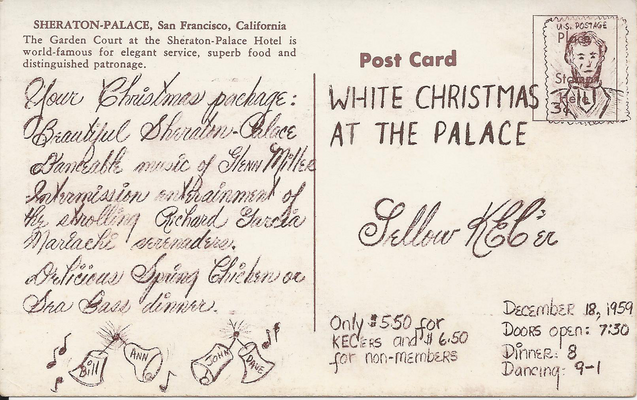 SHERATON-PALACE, San Francisco, California
The Garden Court at the Sheraton-Palace Hotel is
world-famous for elegant service, superb food and
distinguished patronage.
Your Christmas package:
Beautiful Sheraton-Palace
Danceable music of Glenn Miller
Intermission entrainment of
the strolling Richard Garcia
Mariachi serenaders.
Delicious Spring Chicken or
Sea Bass dinner.
Bill
ANN
JOHN
DAVE
Post Card
U.S. POSTAGE
Place
Stamp
Here
3¢
WHITE CHRISTMAS
AT THE PALACE
Fellow KEC'er
Only $5.50 for
KECers and $6.50
for non-members
DECEMBER 18, 1959
DOORS OPEN: 7:30
DINNER: 8
DANCING: 9-1